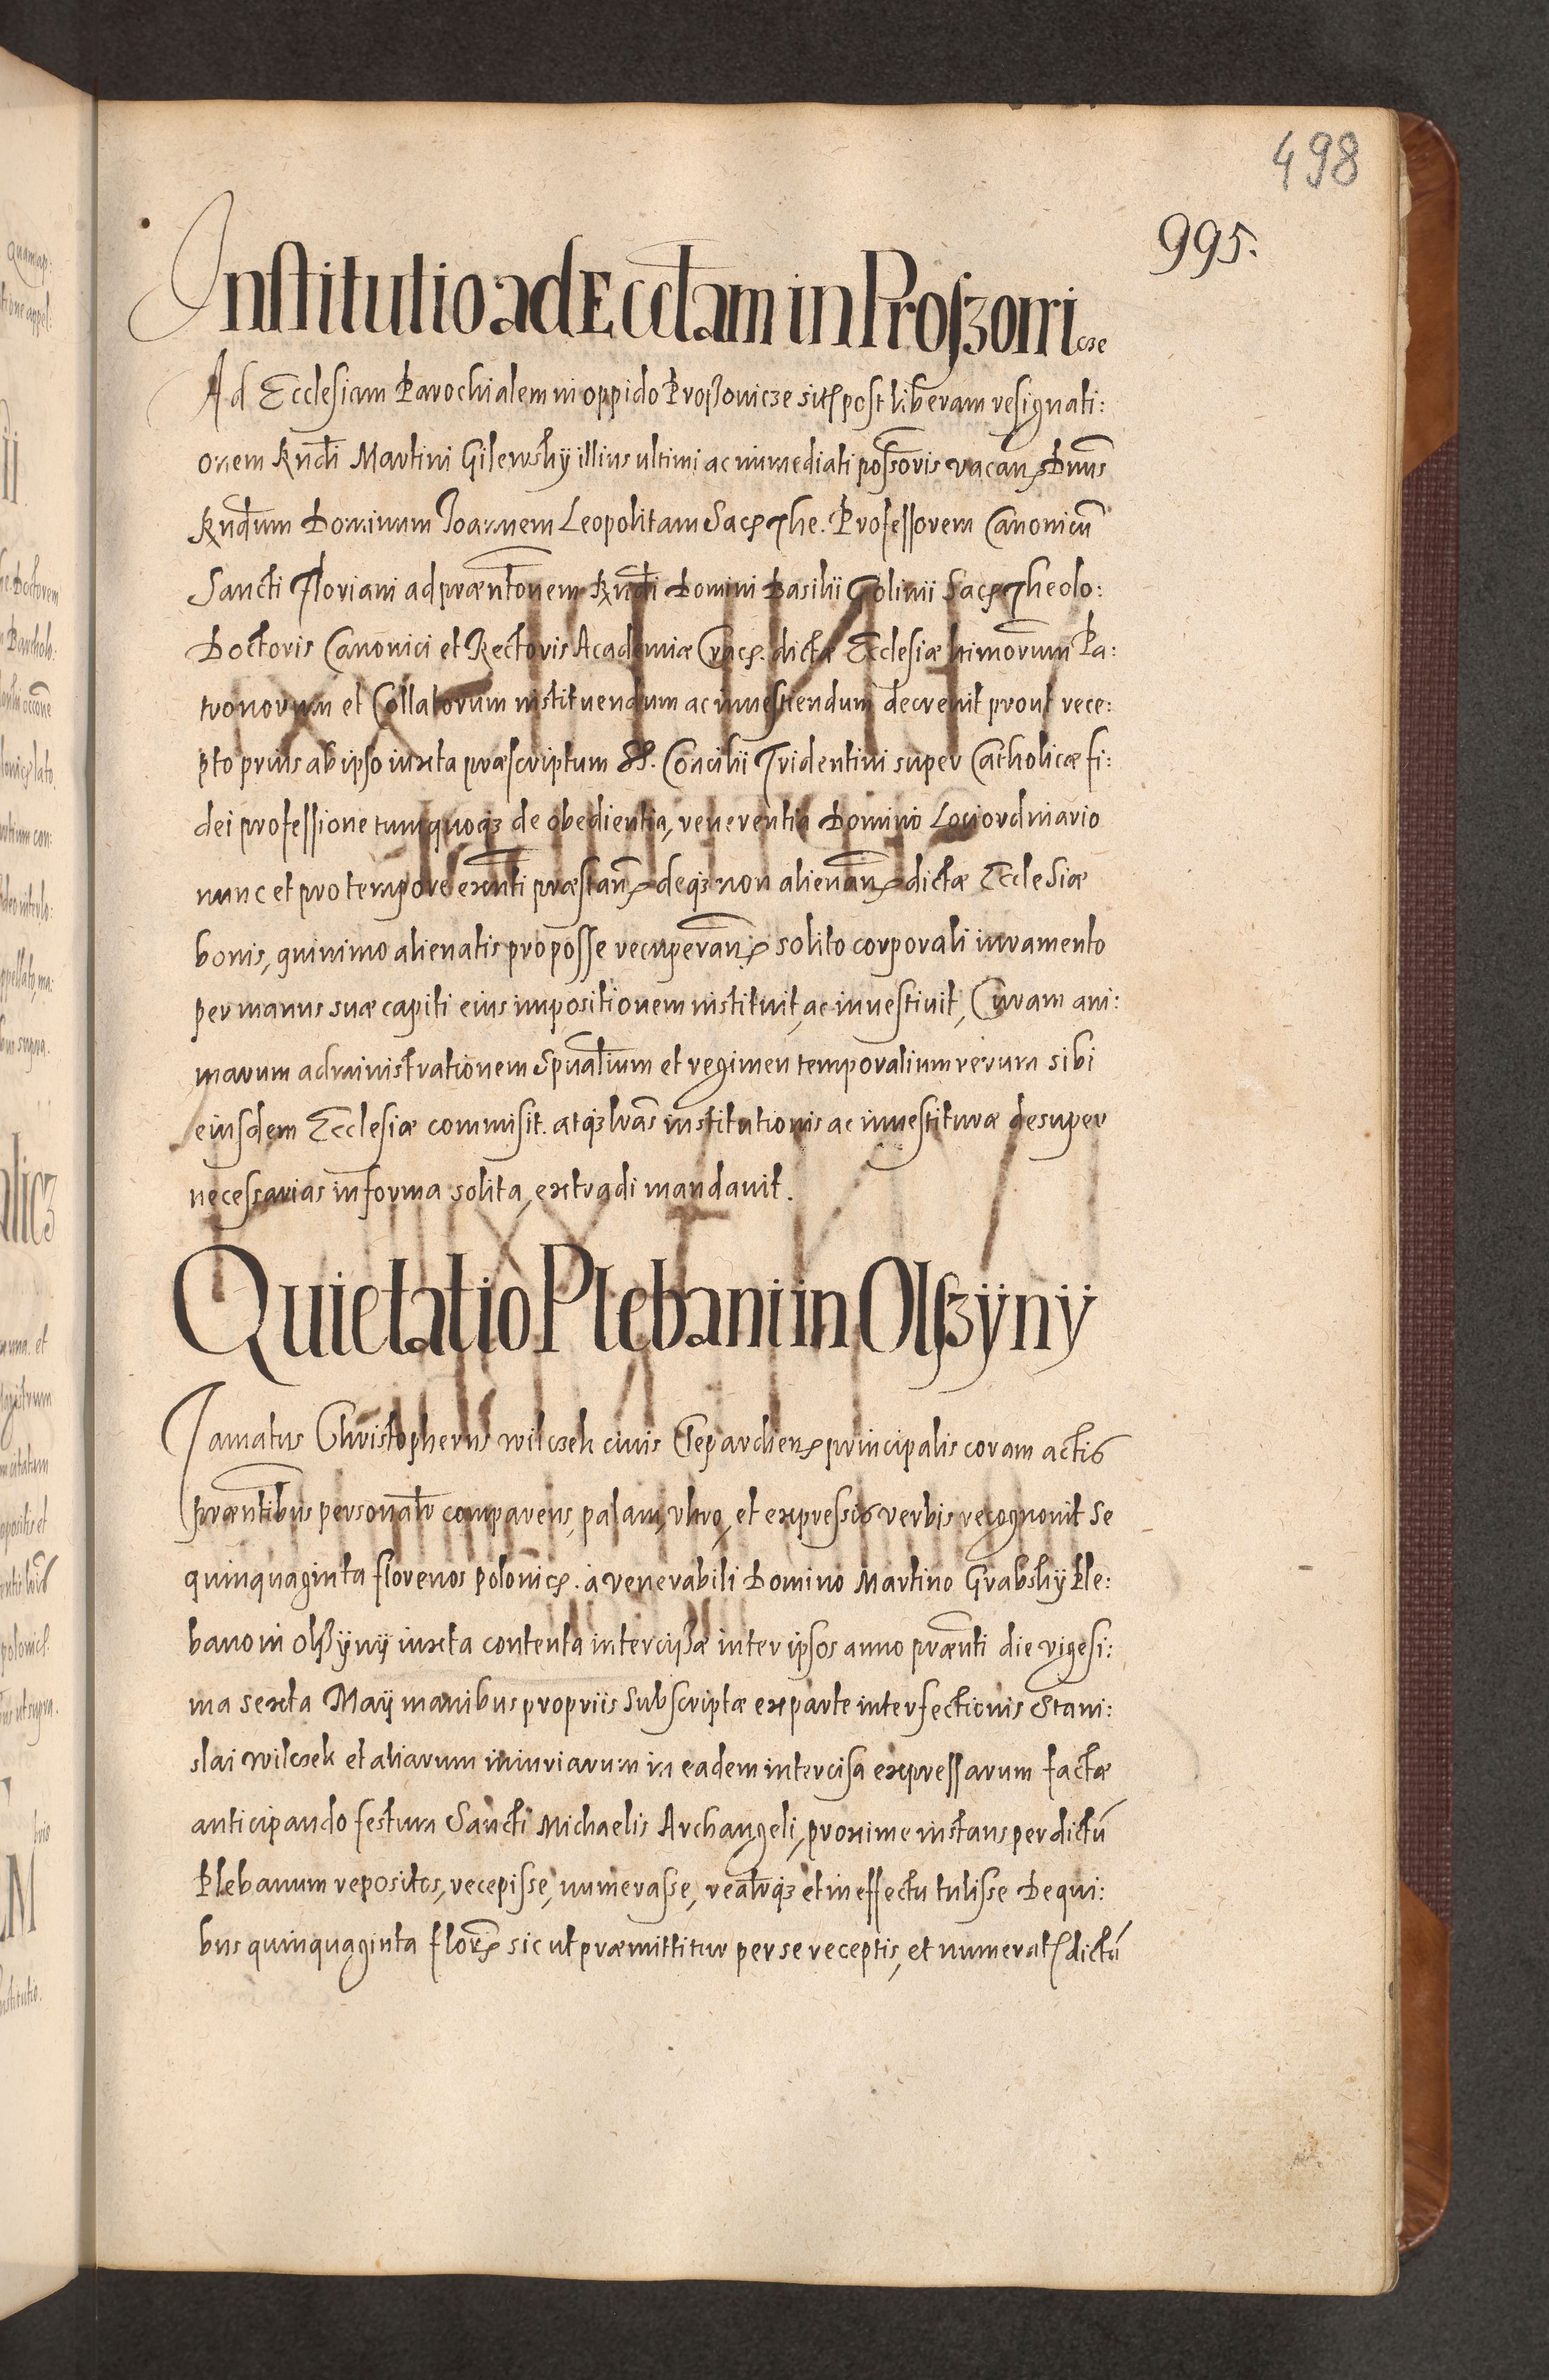 498
995.
Institutio ad Eccłam in Proſzowicze
Ad Ecclesiam Parochialem in oppido Proſzowicze sitꝭ post liberam resignati:
onem Rńdi Martini Gilewsky illius ultimi ac immediati possoris vacanꝭ Dnus
Rńdum Dominum Joannem Leopolitam Sacꝭ The. Professorem Canonicũ
Sancti Floriani ad præntonem Rńdi Domini Basilii Golinii Sacꝭ Theolo:
Doctoris Canonici et Rectoris Academiæ Cracꝭ. dictæ Ecclesiæ Pa:
tronorum et Collatorum instituendum ac inuestiendum decreuit prout rece:
pto prius ab ipso iuxta præscriptum SS. Concilii Tridentini super Catholicæ fi:
dei professione tum quoqꝫ de obedientia, reuerentia Domino Loci ordinario
nunc et pro tempore exnti præstanꝭ deqꝫ non alienanꝭ dictæ Ecclesiæ
bonis, quinimo alienatis pro posse recuperanꝭ solito corporali iuramento
per manus suæ capiti eius impositionem instituit, ac inuestiuit, Curam ani:
marum administrationem Spuałium et regimen temporalium rerum sibi
eiusdem Ecclesiæ commisit. atqꝫ lras institutionis ac inuestituræ desuper
necessarias in forma solita, extradi mandauit.
Quietatio Plebani in Olſzÿnÿ
Famatus Christopherus Wilczek ciuis Clepardienꝭ principalis coram actis
præntibus personałr comparens, palam, vltro, et expressis verbis recognouit se
quinquaginta florenos polonicꝭ. à venerabili Domino Martino Grabsky Ple:
bano in Olſzÿnÿ iuxta contenta intercisæ inter ipsos anno prænti die vigesi:
ma sexta Maÿ manibus propriis subscriptæ ex parte interfectionis Stani:
slai Wilczek et aliarum iniuriarum in eadem intercisa expressarum factæ
anticipando festum Sancti Michaelis Archangeli, proxime instans per dictũ
Plebanum repositos, recepisse, numerasse, reałrqꝫ et in effectu tulisse De qui:
bus quinquaginta florꝭ sic ut præmittitur per se receptis, et numeratꝭ dictũ